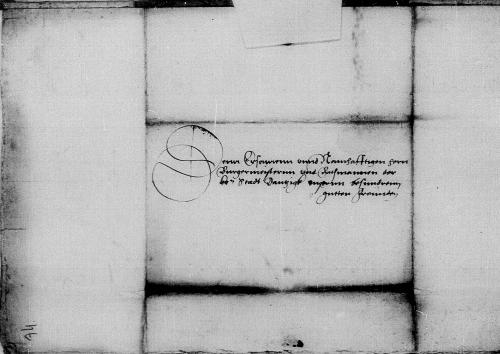 Denn Ersamenn vnnd Namhafftigen hern
Burgermeisternn vnd Rathmannen der
Stadt Dantzigk vnnsern besundernn
gutten Frundenn